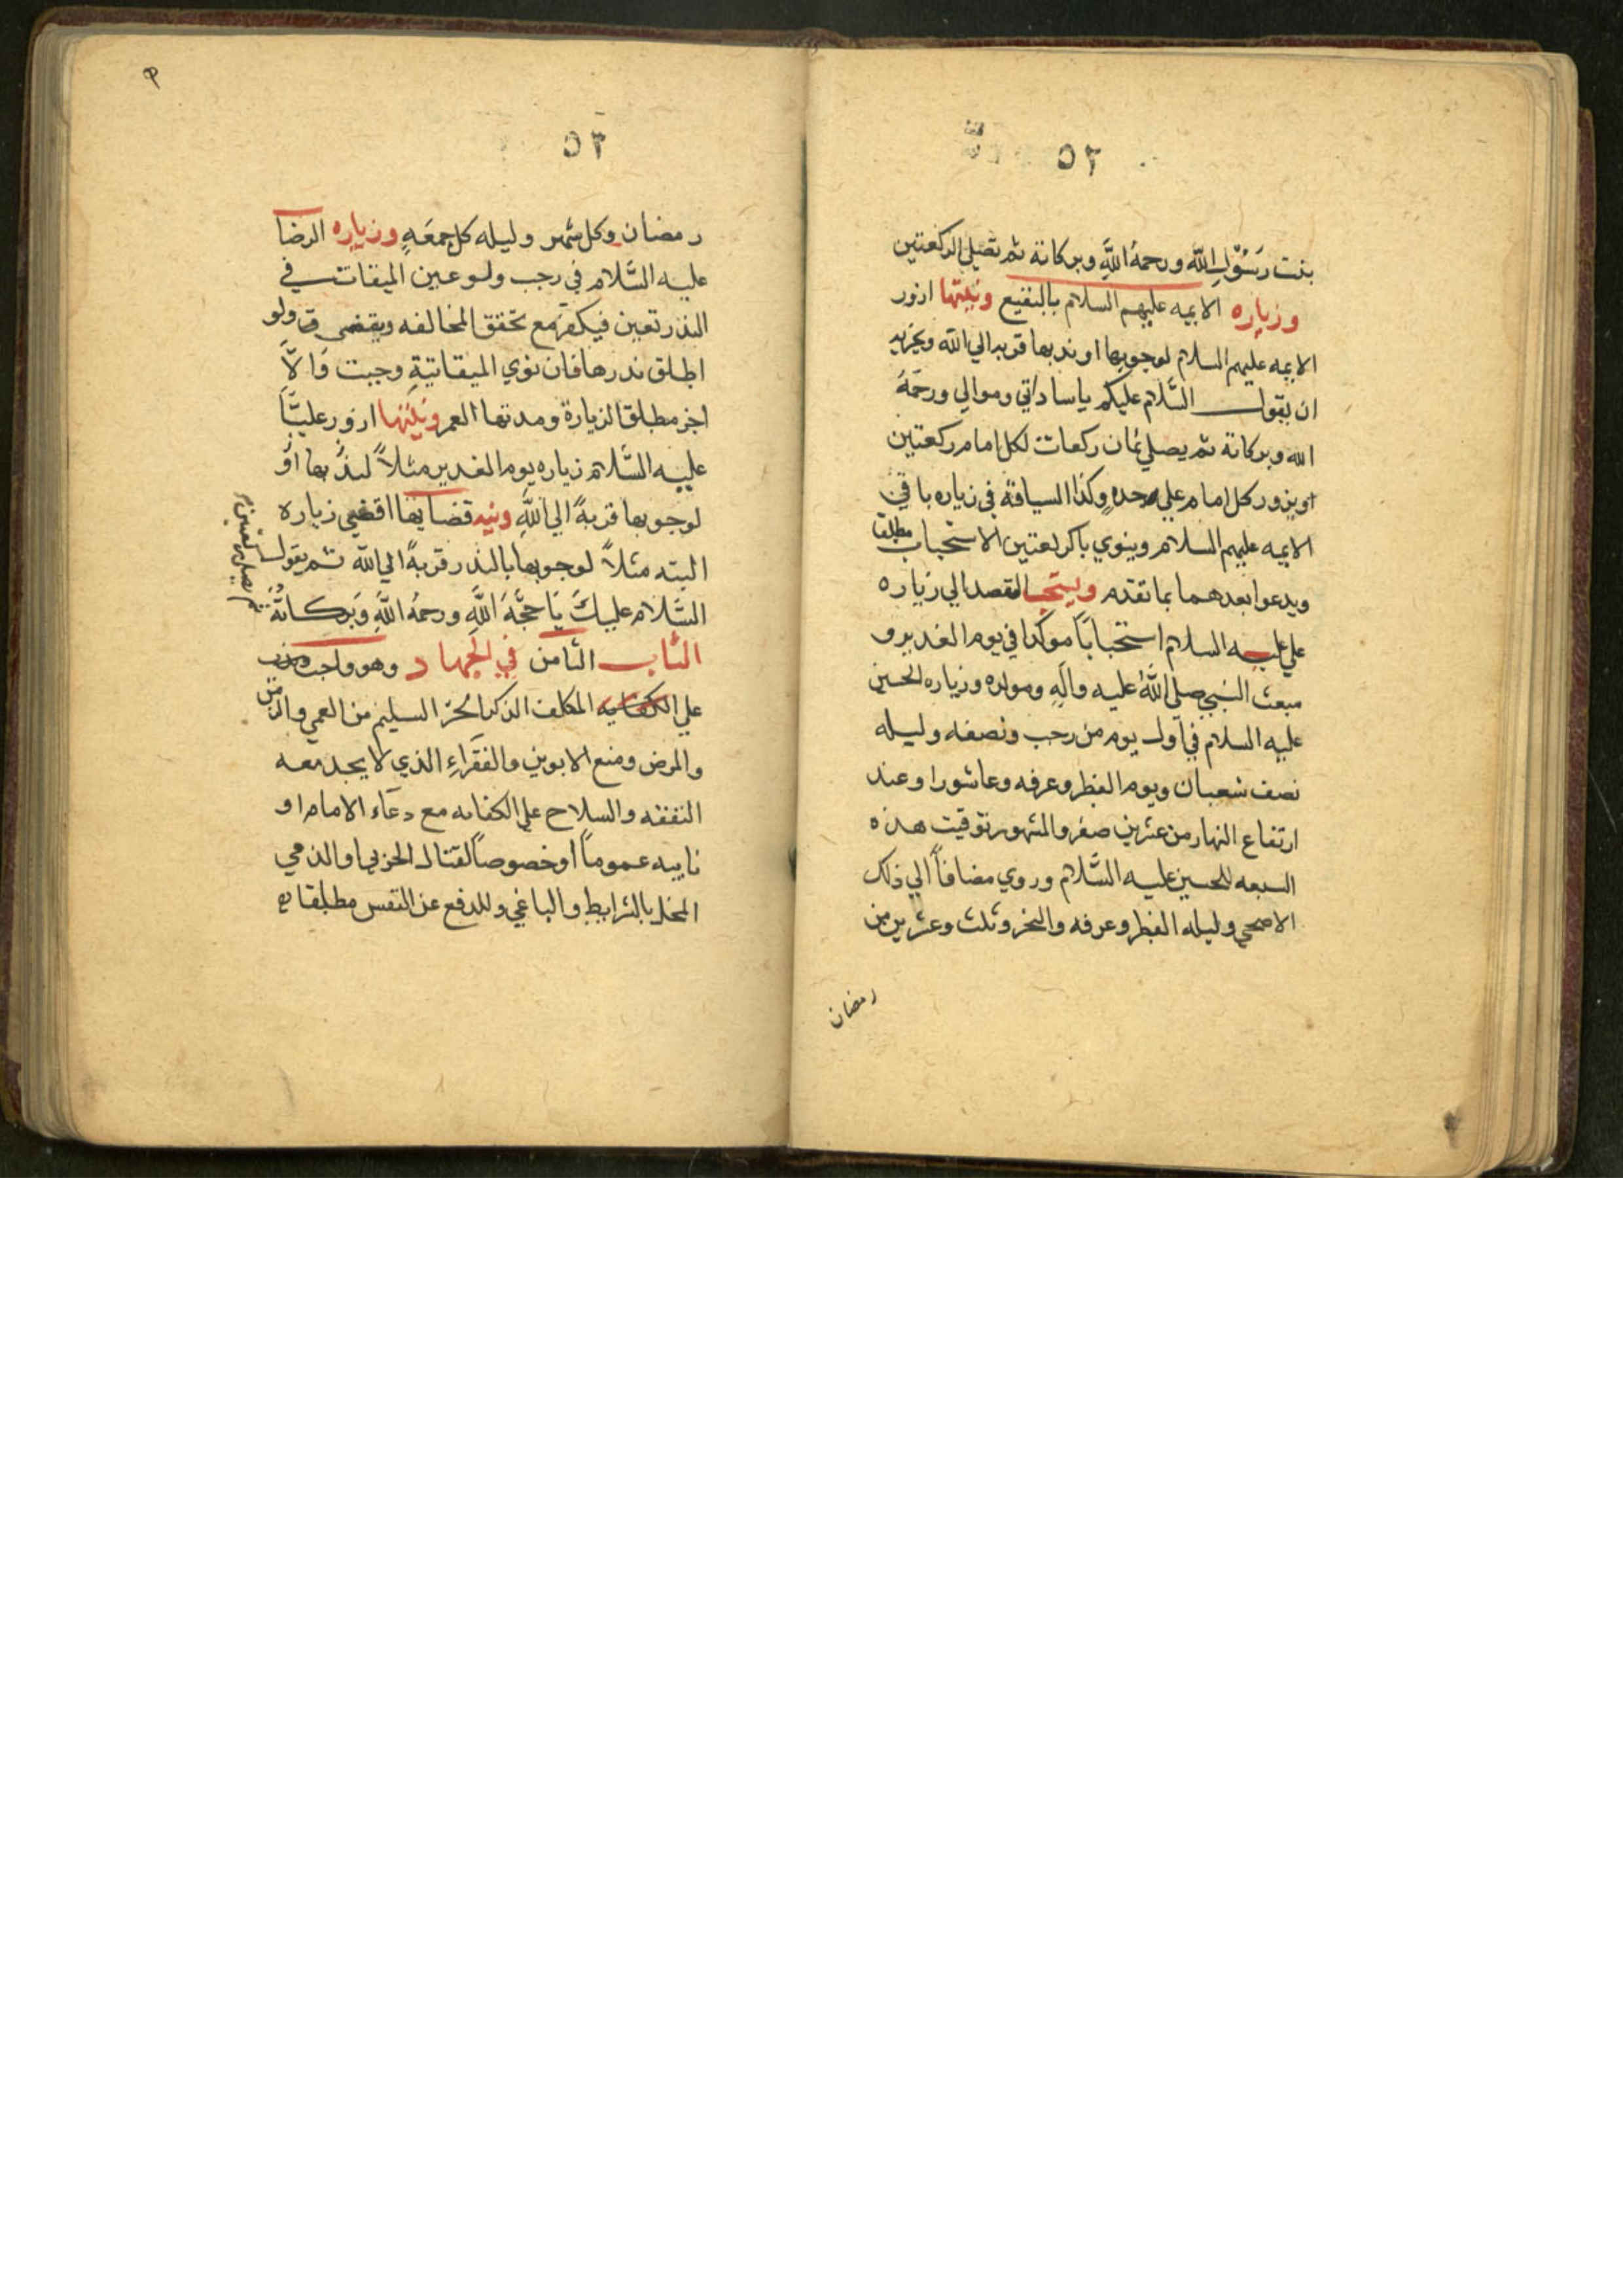 ٥٢
بنت رسُوْلِ اللّه ورحمةُ اللّهِ وبركاته ثم تصلي الركعتين
وزياره الايمه عليهم السلام بالبقيع ونيتها ازور
الايمه عليهم السلام لوجوبها او ندبها قربه الي الله ويجزيه
ان يقول السَّلام عليكم يا ساداتي وموالي ورحمَةُ
الله وبركاته ثم يصلي ثمان ركعات لكل امام ركعتين
او يزور كل امام علي حده وكذا السياقة في زياره باقي
الايمه عليهم السلام وينوي بالركعتين الاستحباب مطلقا
ويدعوا بعدهما بما تقدم ويستحب القصد الي زياره
علي عليه السلام استحباباً موكدا في يوم الغدير و
مبعث النبي صلي اللّهُ عليه وآلهِ ومولده وزياره الحسين
عليه السلام في اول يوم من رجب ونصفه وليله
نصف شعبان ويوم الفطر وعرفه وعاشورا وعند
ارتفاع النهار من عشرين صفر والمشهور توقيت هذه
السبعه للحسين عليه السَّلام وروي مضافاً الي ذلك
الاضحي وليله الفطر وعرفه والنحر وثلث وعشرين من
رمضان
٥٣
رمضان وكل شهر وليله كل جمعَهٍ وزياره الرضا
عليه السَّلام في رجب ولو عين الميقات في
النذر تعين فيكفر مع تحقق المخالفه ويقضي ولو
اطلق نذرها فان نوي الميقاتيةِ وجبت وَالاَّ
اجز مطلق الزيارة ومدتها العمر ونيَّتها ازور عليَّاً
عليه السَّلام زياره يوم الغدير مثلاً لندبها أو
لوجوبها قربةً الي اللّهِ ونيه قضايها اقضي زيارة
البته مثلاً لوجوبها بالنذر قربةً الي اللّه ثم يقول
السَّلام عليكَ يَا حجَّةَ اللّهِ ورحمةُ اللّهِ وَبَركاتُهُ
ثم يصلي ركعتين
الباب الثامن في الجهاد وهو واجب
علي الكفايه المكلف الذكر الحرّ السليم من العمي والزمن
والمرض ومنع الابوين والفقراءِ الذي لا يجد معه
النفقه والسلاح علي الكفايه مع دعَاء الامام او
نايبه عموماً أو خصوصاً لقتال الحربي او الذمي
المخل بالشرايط والباغي وللدفع عن النفس مطلقا